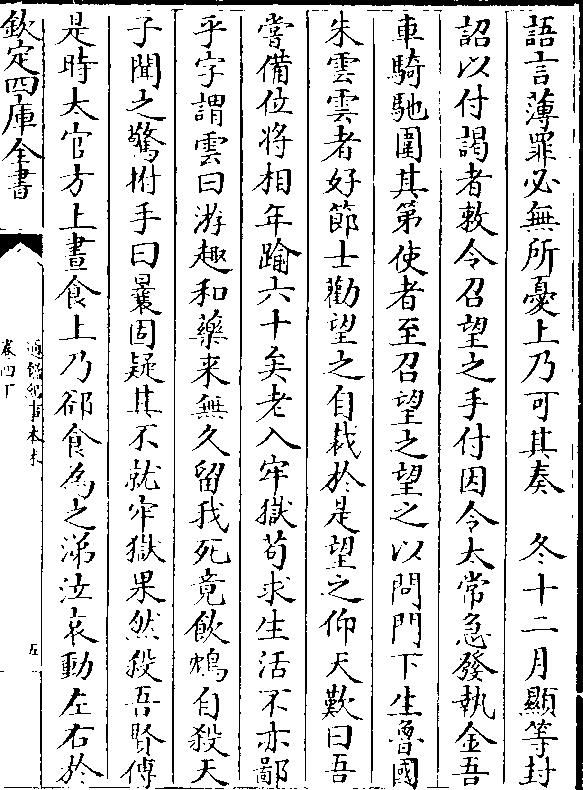 語言薄罪必無所憂上乃可其奏　冬十二月顯等封
詔以付謁者敕令召望之手付因令太常急發執金吾
車騎馳圍其第使者至召望之望之以問門下生魯國
朱雲雲者好節士勸望之自裁於是望之仰天歎曰吾
嘗備位將相年踰六十矣老入牢獄苟求生活不亦鄙
乎字謂雲曰游趣和藥来無久留我死竟飲鴆自殺天
子聞之驚拊手曰曩固疑其不就牢獄果然殺吾賢傅
是時太官方上晝食上乃郤食為之涕泣哀動左右於
欽定四庫全書
通鑑紀事本末
卷四下
五